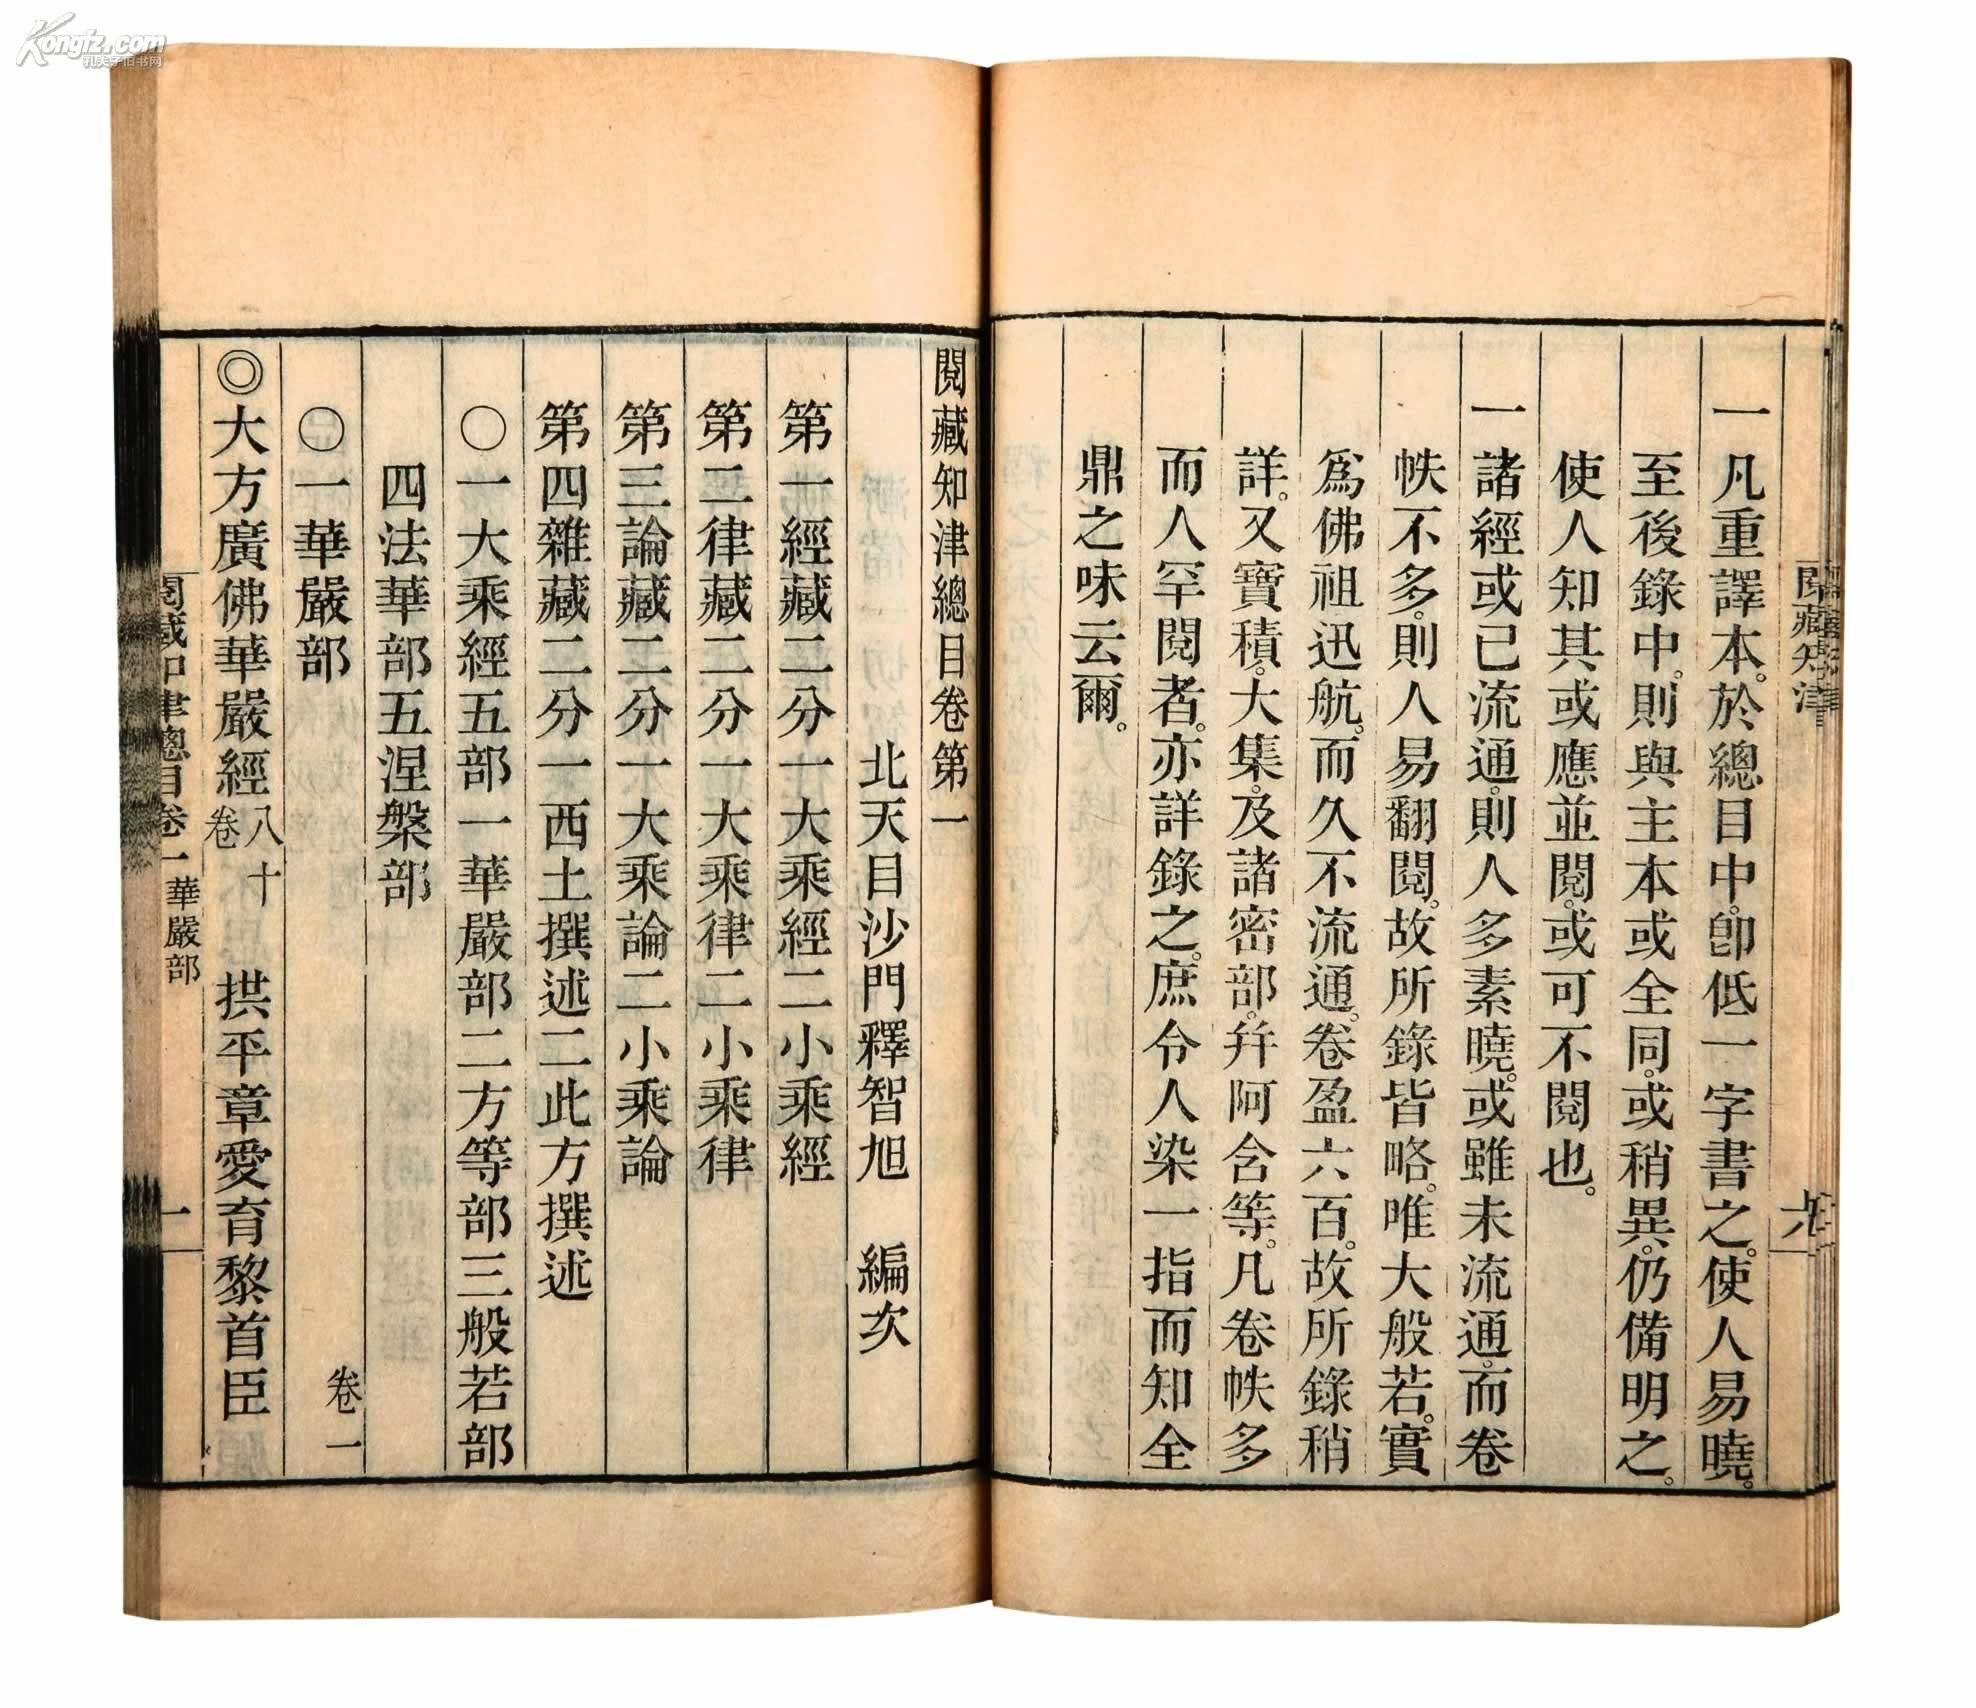 Kongfz.com
孔夫子旧书网
閱藏知津
六
一凡重譯本。於總目中。卽低一字書之。使人易曉。
至後錄中。則與主本或全同。或稍異。仍備明之。
使人知其或應並閱。或可不閱也。
一諸經或已流通。則人多素曉。或雖未流通。而卷
帙不多。則人易翻閱。故所錄皆略。唯大般若。實
爲佛祖迅航。而久不流通。卷盈六百。故所錄稍
詳。又寶積。大集。及諸密部。幷阿含等。凡卷帙多
而人罕閱者。亦詳錄之。庶令人染一指而知全
鼎之味云爾。
閱藏知津總目卷第一
北天目沙門釋智旭 編次
第一經藏二分一大乘經二小乘經
第二律藏二分一大乘律二小乘律
第三論藏二分一大乘論二小乘論
第四雜藏二分一西土撰述二此方撰述
○一大乘經五部一華嚴部二方等部三般若部
四法華部五涅槃部
○一華嚴部 卷一
◎大方廣佛華嚴經八十卷 拱平章愛育黎首臣
閱藏知津總目卷一 華嚴部 一